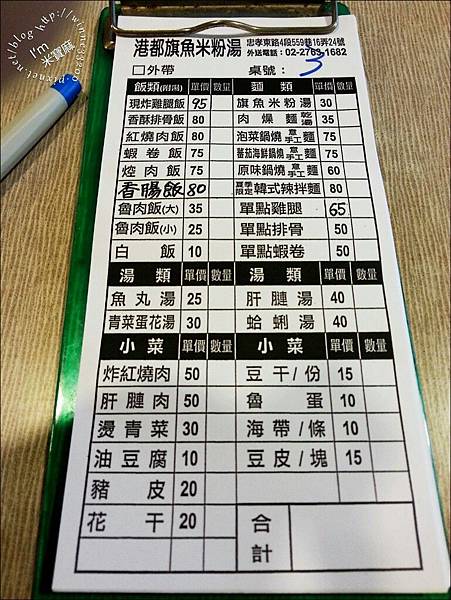 http://winne3200.pixnet.net/blog
I'm
米寶麻
港都旗魚米粉湯 忠孝東路4段559巷16弄24號
外送電話：02-2763-1682
□外帶 桌號：3
飯類(附湯) 單價 數量 麵類 單價 數量
現炸雞腿飯 95 旗魚米粉湯 30
香酥排骨飯 80 肉燥麵 乾湯 35
紅燒肉飯 80 泡菜鍋燒意手工麵 75
蝦卷飯 75 蕃茄海鮮鍋燒意手工麵 80
焢肉飯 75 原味鍋燒意手工麵 60
香腸飯 80 夏季限定韓式辣拌麵 80
魯肉飯(大) 35 單點雞腿 65
魯肉飯(小) 25 單點排骨 50
白飯 10 單點蝦卷 50
湯類 單價 數量 湯類 單價 數量
魚丸湯 25 肝膅湯 40
青菜蛋花湯 30 蛤蜊湯 40
小菜 單價 數量 小菜 單價 數量
炸紅燒肉 50 豆干/份 15
肝膅肉 50 魯蛋 10
燙青菜 30 海帶/條 10
油豆腐 10 豆皮/塊 15
豬皮 20
花干 20 合計